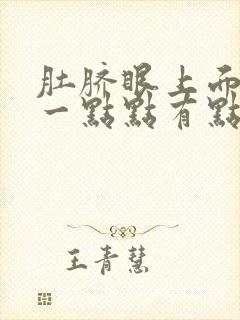 肚脐眼上面
一點點有點
王青慧